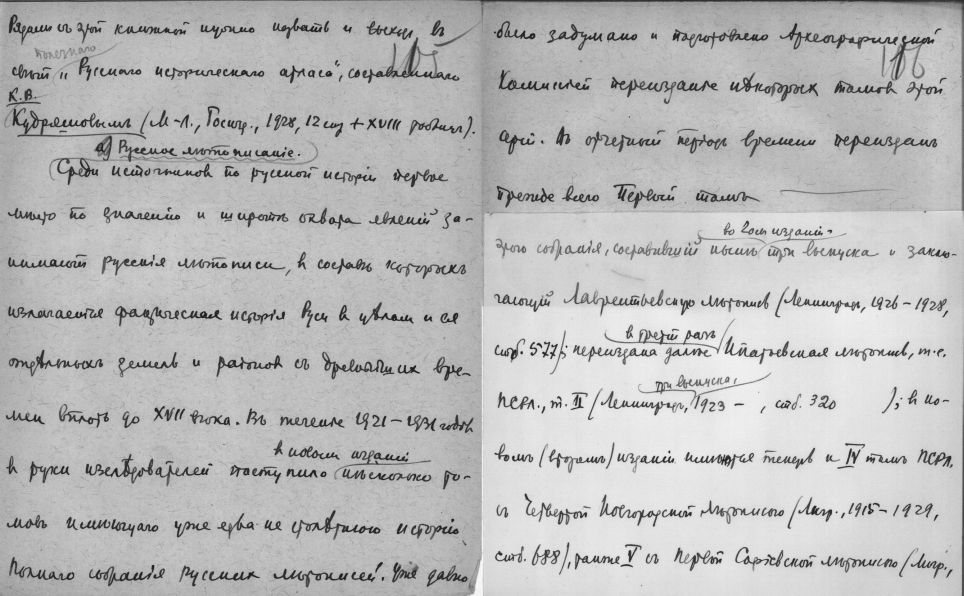 Рядомъ съ этой книжной нужно назвать и выходъ въ
полезнаго
свѣтъ „Русскаго историческаго атласа“, составленнаго
К.В.
Кудряшовымъ (М.-Л., Госизд., 1928, 12 стр + XVIII таблицъ).
105
а) Русское лѣтописаніе.
Среди источниковъ по русской исторіи первое
мѣсто по значенію и широтѣ охвата явленій за-
нимаютъ русскія лѣтописи, въ составѣ которыхъ
излагается фактическая исторія Руси въ цѣломъ и ея
отдѣльныхъ земель и районовъ съ древнѣйшихъ вре-
менъ вплоть до XVII вѣка. Въ теченіе 1921–1931 годовъ
въ новомъ изданіи
въ руки изслѣдователей поступило нѣсколько то-
мовъ имѣющаго уже едва не столѣтнюю исторію
Полнаго собранія Русскихъ лѣтописей. Уже давно
было задумано и подготовлено Археографической
106
Комиссіей переизданіе нѣкоторыхъ томовъ этой
серіи. Въ отчетный періодъ времени переизданъ
прежде всего Первый томъ
во 2омъ изданіи
этого собранія, составившій нынѣ три выпуска и заклю-
чающій Лаврентьевскую лѣтопись (Ленинградъ, 1926–1928,
въ третій разъ
стб. 577); переиздана далѣе Ипатьевская лѣтопись, т.е.
три выпуска,
ПСРЛ., т. II (Ленинградъ, 1923 – , стб. 320 ); въ но-
вомъ (второмъ) изданіи имѣются теперь и IV томъ ПСРЛ.
съ Четвертой Новгородской лѣтописью (Лнгр., 1915–1929,
стб. 688), также V съ Первой Софійской лѣтописью (Лнгр.,